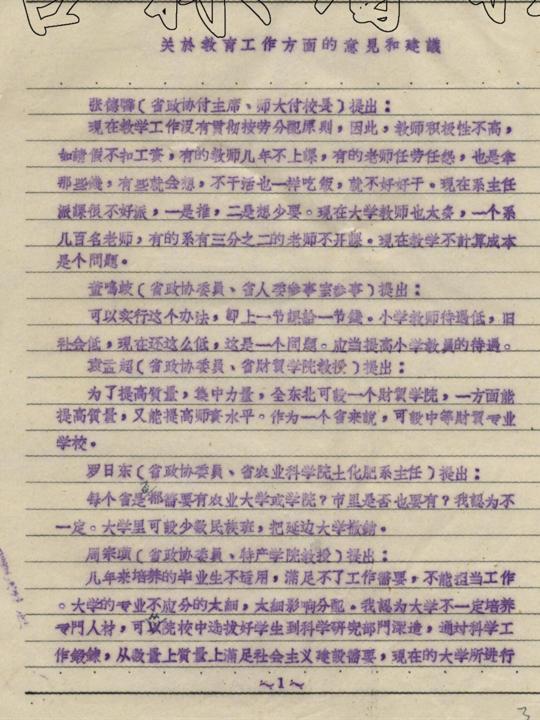 关於教育工作方面的意見和建議
张德馨(省政协付主席、师大付校長)提出:
现在教学工作沒有貫彻按劳分配原则，因此，教师积极性不高，
如請假不扣工資，有的教师几年不上課，有的老师任劳任怨，也是拿
那些錢，有些就会想，不干活也一样吃飯，就不好好干。现在系主任
派課很不好派，一是推，二是想少要。现在大学教师也太多，一个系
几百名老师，有的系有三分之二的老师不开課。现在教学不計算成本
是个問题。
董鳴岐(省政协委員、省人委参事室参事)提出:
可以实行这个办法，即上一节課給一节錢。小学教师待遇低，旧
社会低，现在还这么低，这是一个問题。应当提高小学教員的待遇。
袁孟超(省政协委員、省財貿学院教授)提出:
为了提高貭量，集中力量，全东北可設一个財貿学院，一方面能
提高貭量，又能提高师資水平。作为一个省来說，可設中等財貿专业
学校。
罗日东(省政协委員、省农业科学院土化肥系主任)提出:
每个省是都需要有农业大学或学院？市里是否也要有？我認为不
一定。大学里可設少数民族班，把延边大学撤銷。
周宗璜(省政协委員、特产学院教授)提出:
几年来培养的毕业生不适用，滿足不了工作需要，不能担当工作
。大学的专业不应分的太細，太細影响分配。我認为大学不一定培养
专門人材，可以院校中选拔好学生到科学研究部門深造，通过科学工
作鍛鍊，从数量上貭量上滿足社会主义建設需要，现在的大学所进行
~1~
3